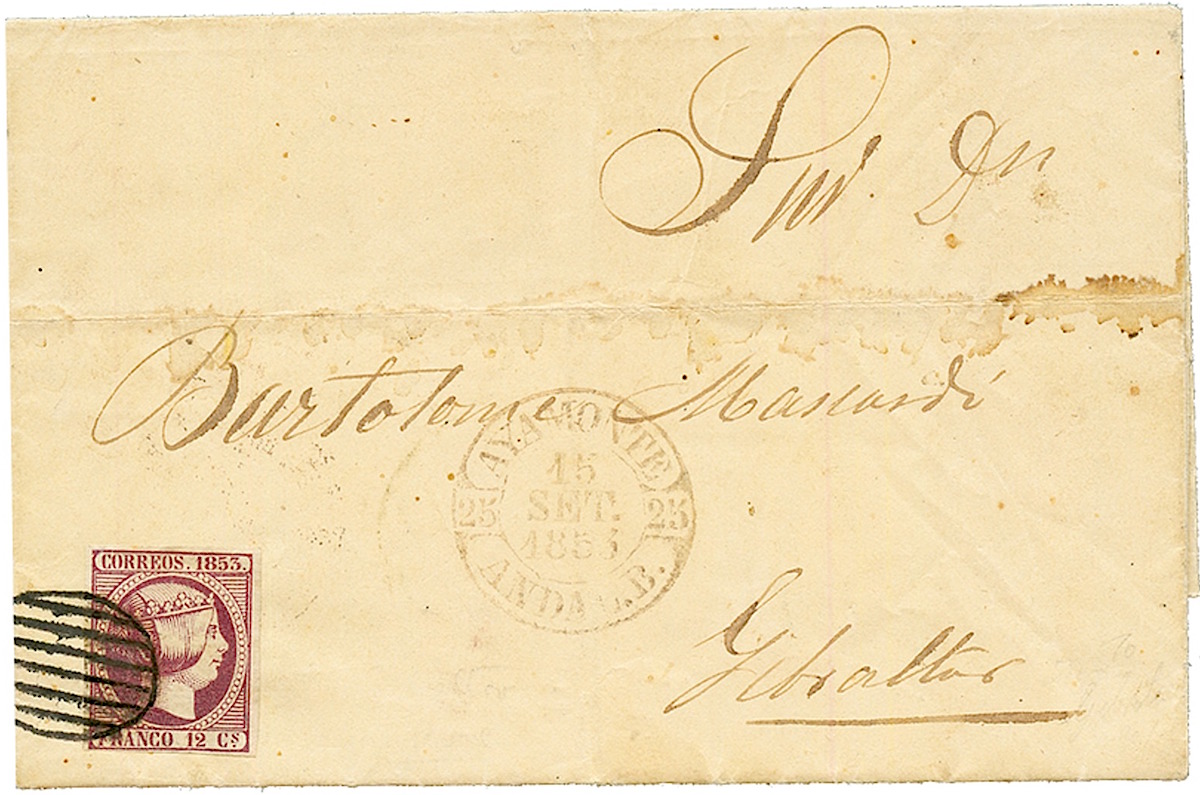 Sor. Dn
Bartolome Mascardi
AYAMONTE
15
25 SET. 25
1853
ANDA. B.
CORREOS. 1853.
FRANCO 12 Cs
Gibraltar